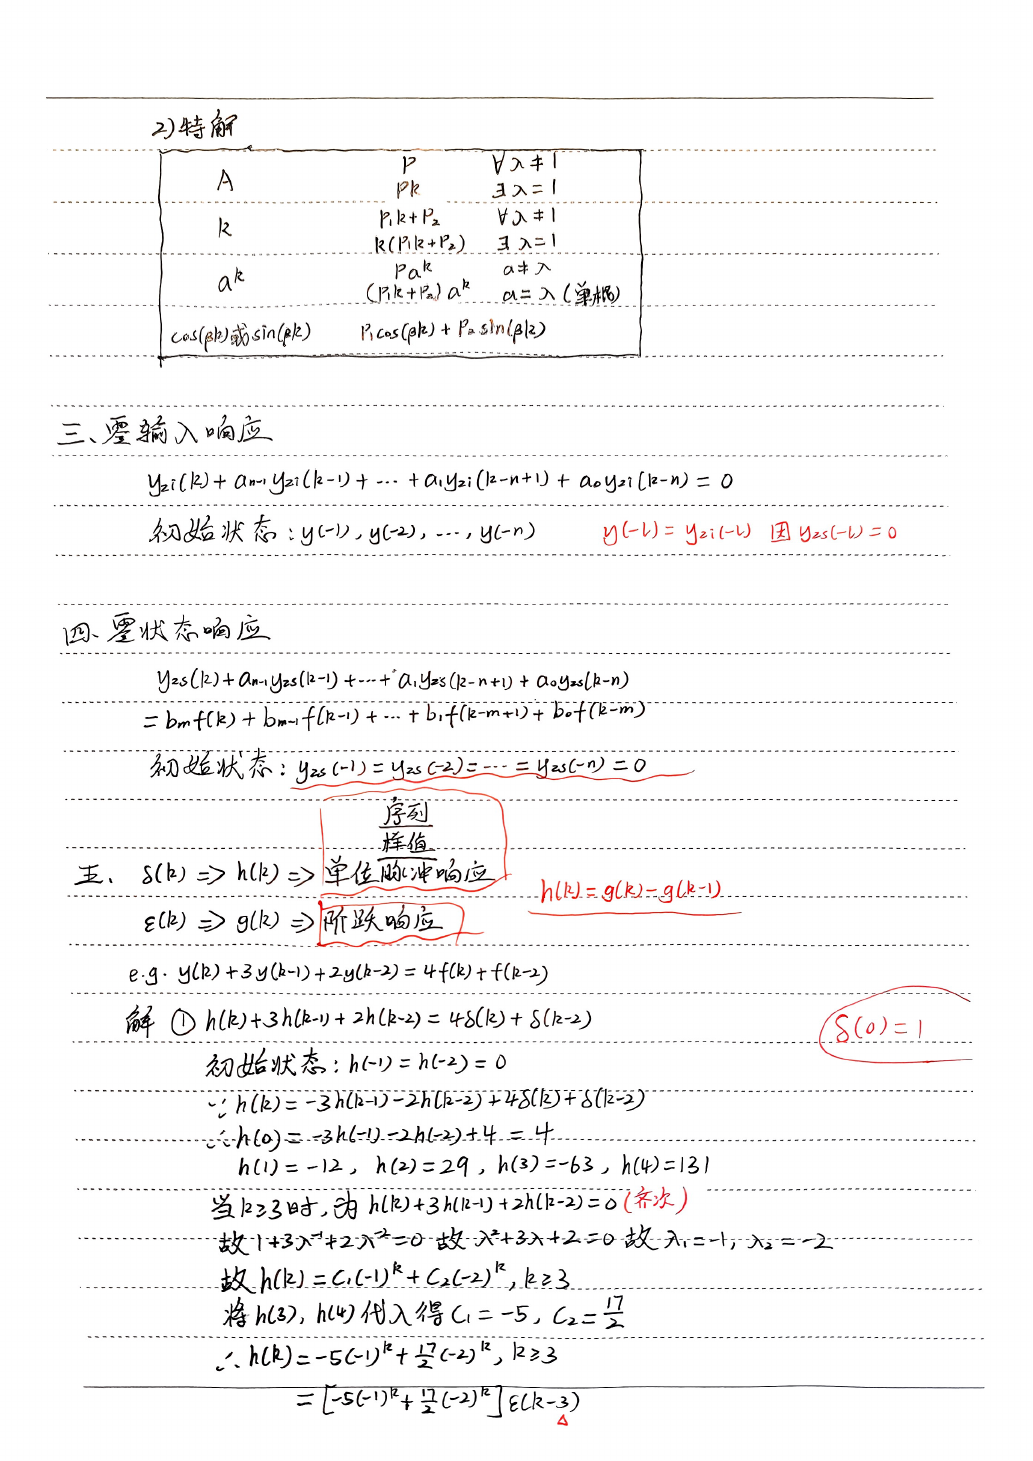 2)特解
A P ∀λ≠1
Pk ∃λ=1
k P₁k+P₂ ∀λ≠1
k(P₁k+P₂) ∃λ=1
aᵏ Paᵏ a≠λ
(P₁k+P₂)aᵏ a=λ(单根)
cos(βk)或sin(βk) P₁cos(βk)+P₂sin(βk)
三、零输入响应
yzi(k)+aₙ₋₁yzi(k-1)+…+a₁yzi(k-n+1)+a₀yzi(k-n)=0
初始状态:y(-1),y(-2),…,y(-n) y(-i)=yzi(-i) 因yzs(-i)=0
四、零状态响应
yzs(k)+aₙ₋₁yzs(k-1)+…+a₁yzs(k-n+1)+a₀yzs(k-n)
=bₘf(k)+bₘ₋₁f(k-1)+…+b₁f(k-m+1)+b₀f(k-m)
初始状态:yzs(-1)=yzs(-2)=…=yzs(-n)=0
序列
样值
五、δ(k)=>h(k)=>单位脉冲响应
h(k)=g(k)-g(k-1)
ε(k)=>g(k)=>阶跃响应
e.g. y(k)+3y(k-1)+2y(k-2)=4f(k)+f(k-2)
解 ①h(k)+3h(k-1)+2h(k-2)=4δ(k)+δ(k-2) δ(0)=1
初始状态:h(-1)=h(-2)=0
∵h(k)=-3h(k-1)-2h(k-2)+4δ(k)+δ(k-2)
∴h(0)=-3h(-1)-2h(-2)+4=4
h(1)=-12,h(2)=29,h(3)=-63,h(4)=131
当k≥3时,为h(k)+3h(k-1)+2h(k-2)=0(齐次)
故1+3λ⁻¹+2λ⁻²=0 故λ²+3λ+2=0 故λ₁=-1,λ₂=-2
故h(k)=C₁(-1)ᵏ+C₂(-2)ᵏ,k≥3
将h(3),h(4)代入得C₁=-5,C₂=17/2
∴h(k)=-5(-1)ᵏ+17/2(-2)ᵏ,k≥3
=[-5(-1)ᵏ+17/2(-2)ᵏ]ε(k-3)